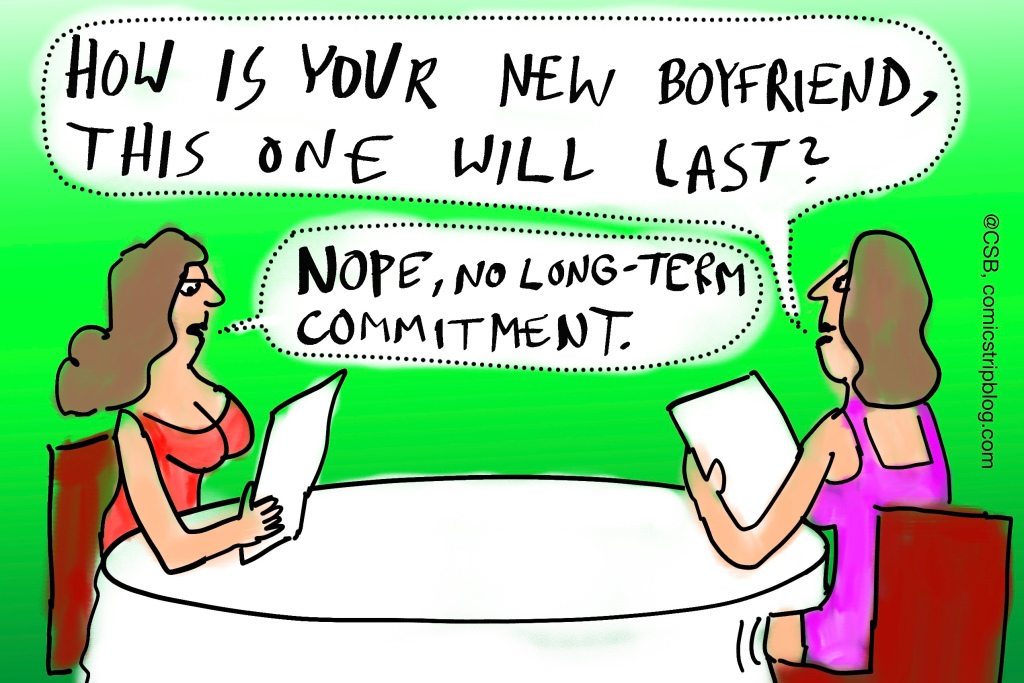 HOW IS YOUR NEW BOYFRIEND,
THIS ONE WILL LAST?
NOPE, NO LONG-TERM
COMMITMENT.
@CSB, comicstripblog.com